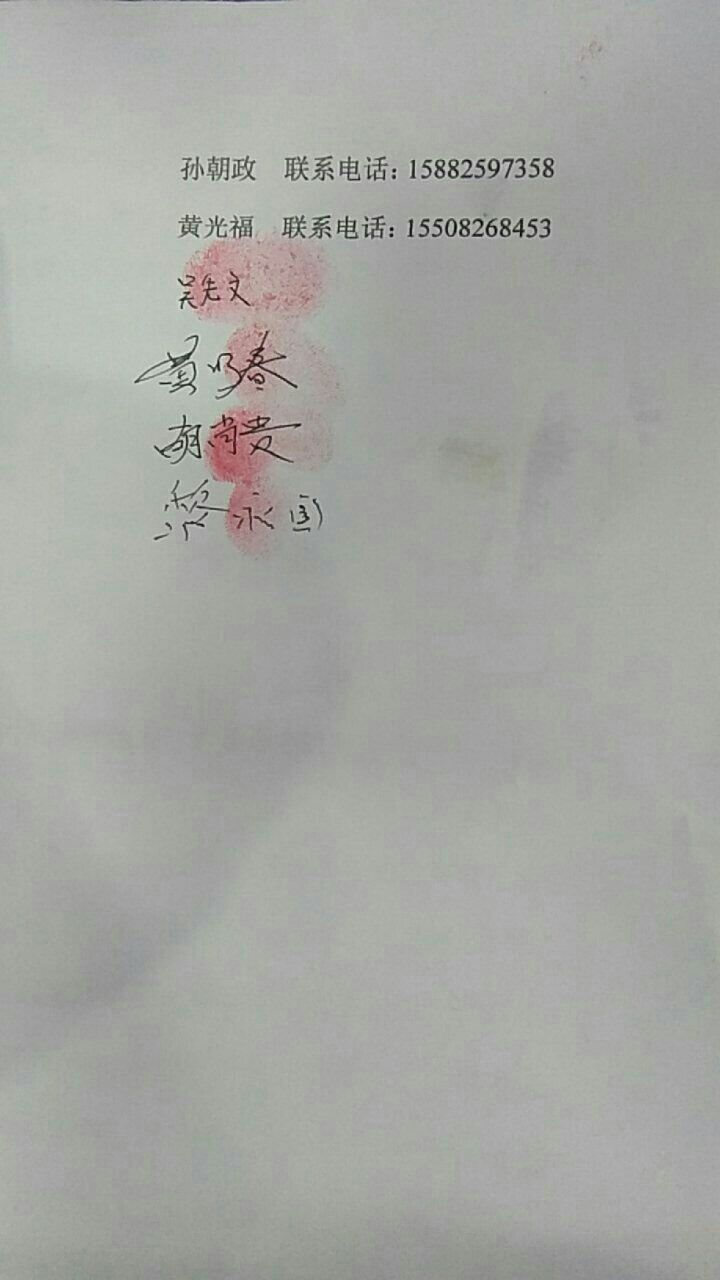 孙朝政 联系电话：15882597358
黄光福 联系电话：15508268453
吴先文
黄明春
胡尚贵
黎永国